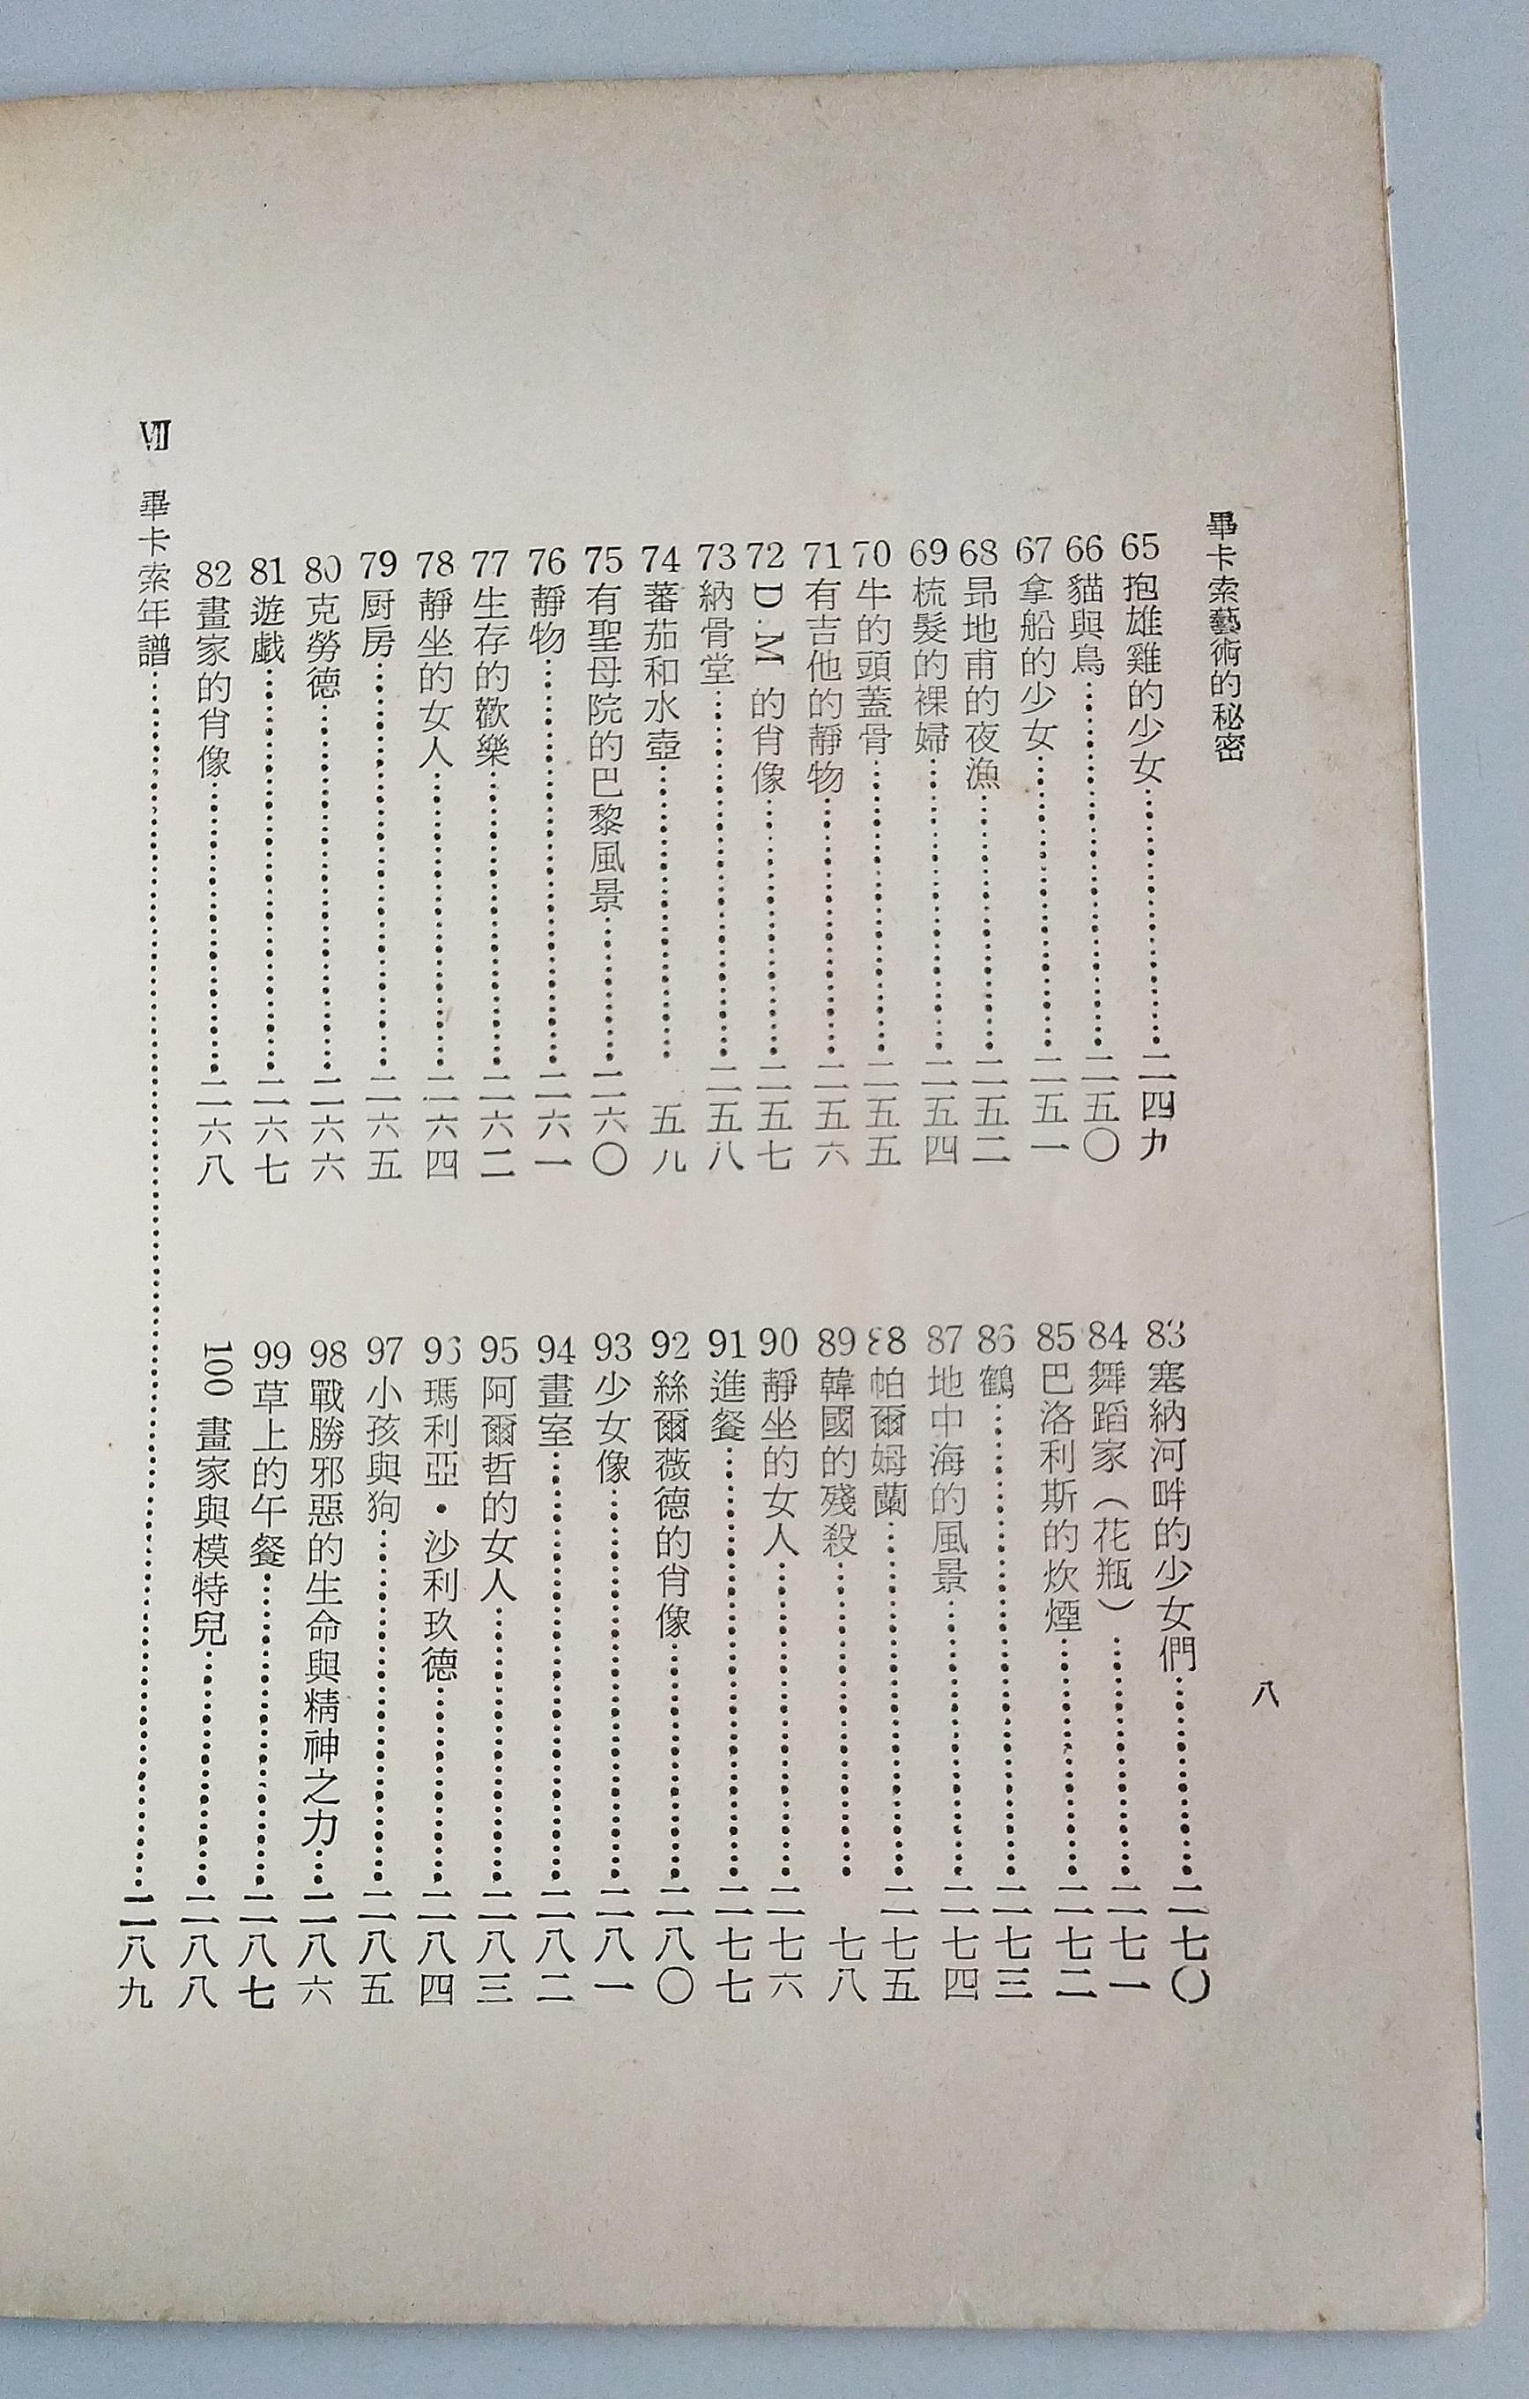 畢卡索藝術的秘密
八
65 抱雄雞的少女…………二四九
66 貓與鳥…………二五〇
67 拿船的少女…………二五一
68 昂地甫的夜漁…………二五二
69 梳髮的裸婦…………二五四
70 牛的頭蓋骨…………二五五
71 有吉他的靜物…………二五六
72 D.M 的肖像…………二五七
73 納骨堂…………二五八
74 蕃茄和水壺…………五九
75 有聖母院的巴黎風景…………二六〇
76 靜物…………二六一
77 生存的歡樂…………二六二
78 靜坐的女人…………二六四
79 厨房…………二六五
80 克勞德…………二六六
81 遊戲…………二六七
82 畫家的肖像…………二六八
83 塞納河畔的少女們…………二七〇
84 舞蹈家(花瓶)…………二七一
85 巴洛利斯的炊煙…………二七二
86 鶴…………二七三
87 地中海的風景…………二七四
88 帕爾姆蘭…………二七五
89 韓國的殘殺…………七八
90 靜坐的女人…………二七六
91 進餐…………二七七
92 絲爾薇德的肖像…………二八〇
93 少女像…………二八一
94 畫室…………二八二
95 阿爾哲的女人…………二八三
96 瑪利亞•沙利玖德…………二八四
97 小孩與狗…………二八五
98 戰勝邪惡的生命與精神之力…………二八六
99 草上的午餐…………二八七
100 畫家與模特兒…………二八八
Ⅶ 畢卡索年譜…………二八九